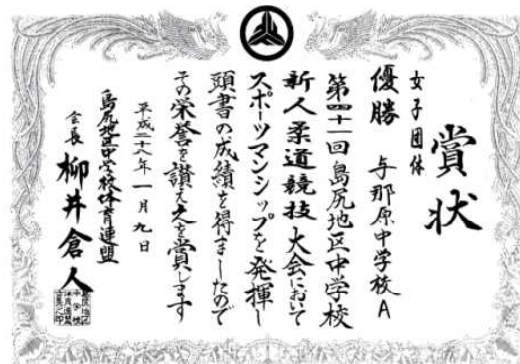 賞状
女子団体
優勝 与那原中学校A
第四十一回島尻地区中学校
新人柔道競技大会において
スポーツマンシップを発揮し
頭書の成績を得ましたので
その栄誉を讃え之を賞します
平成二十八年一月九日
島尻地区中学校体育連盟
会長 柳井倉人